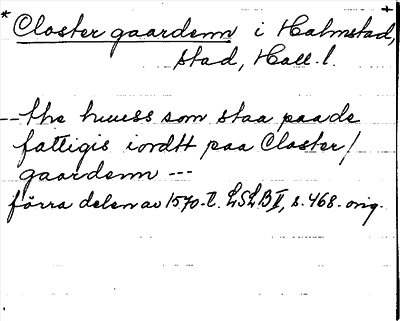 * Closter gaardenn i Halmstad,
stad, Hall. l.
-- the huuss som staa paade
fattigis iordtt paa Closter/
gaardenn ---
förra delen av 1570-t. LSLB II, s. 468. orig.